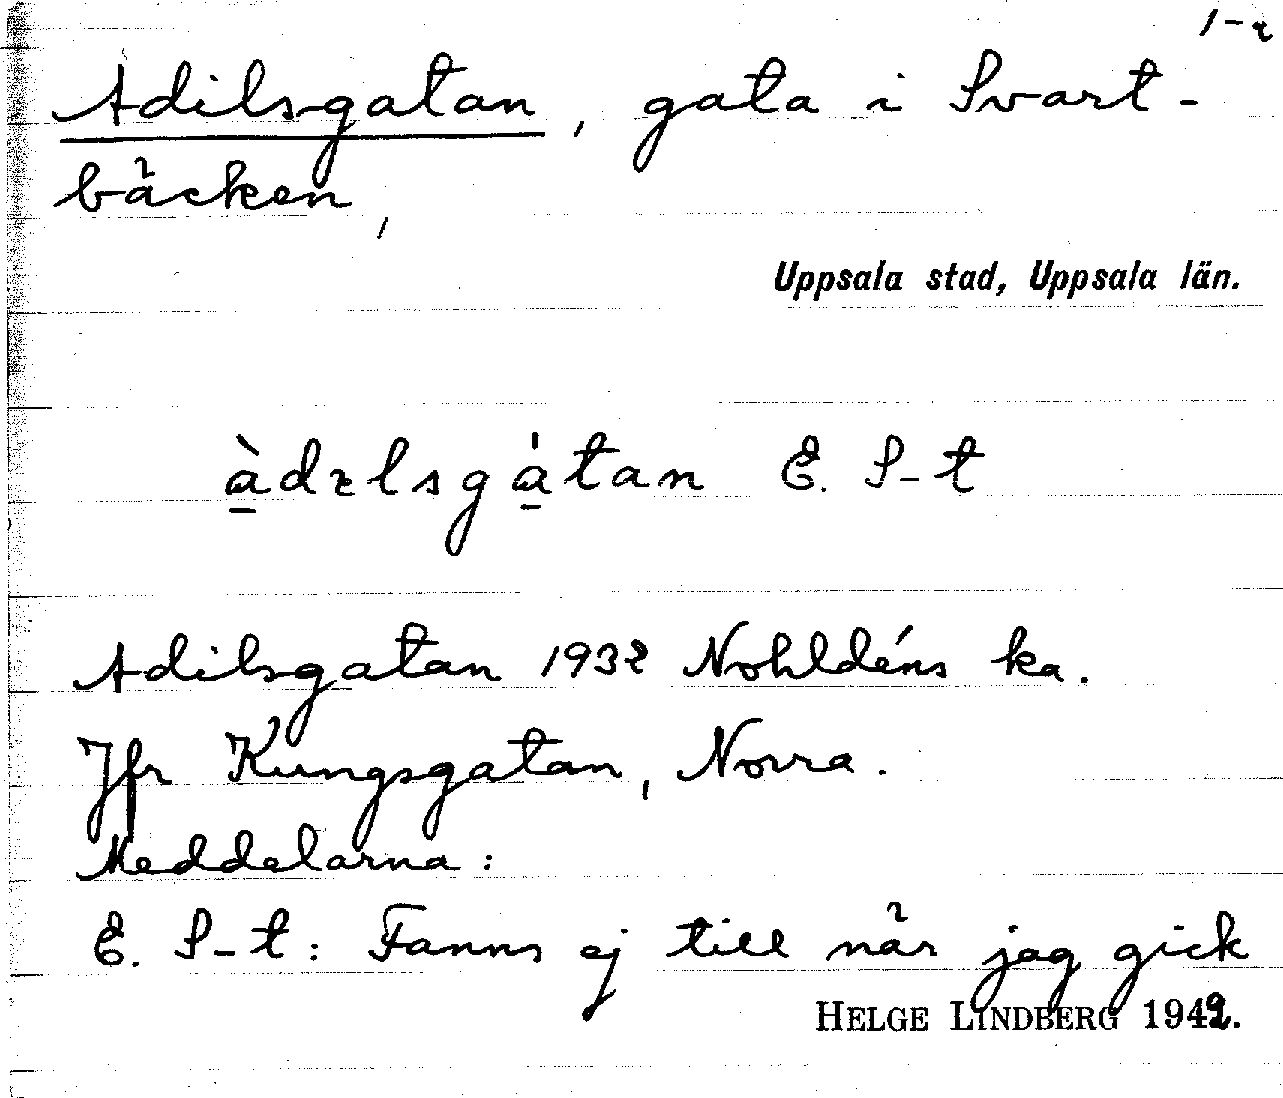 1-2
Adilsgatan, gata i Svart-
bäcken,
Uppsala stad, Uppsala län.
àdɩlsgátan E. S-t
Adilsgatan 1932 Nohldéns ka.
Jfr Kungsgatan, Norra.
Meddelarna:
E. S-t: Fanns ej till när jag gick
HELGE LINDBERG 1942.